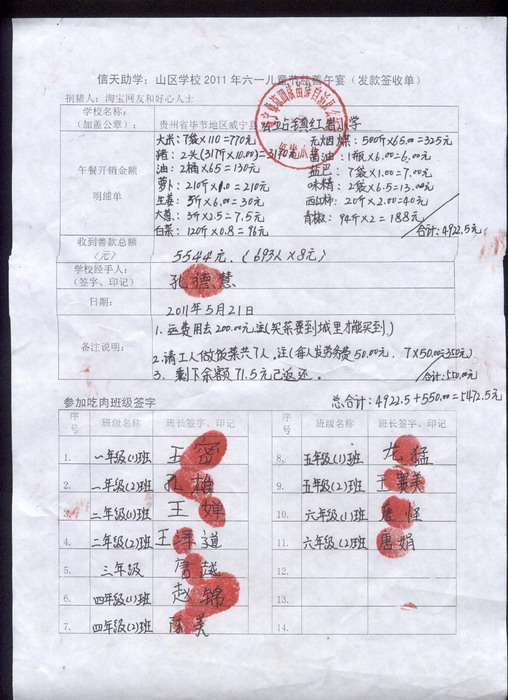 信天助学：山区学校2011年六一儿童节慈善午宴（发款签收单）
捐猪人：淘宝网友和好心人士
学校名称：
（加盖公章）：
贵州省毕节地区威宁县 么站镇红岩小学
午餐开销金额
明细单
大米：7袋×110=770元 无烟煤：500斤×65.00=325元
猪：2头(317斤×10.00)=3170元 酱油：1瓶×6.00=6.00元
油：2桶×65=130元 盐巴：7袋×1.00=7.00元
萝卜：210斤×1.0=210元 味精：2袋×6.5=13.00元
生姜：5斤×6.00=30元 西红柿：20斤×2.00=40元
大葱：3斤×2.5=7.5元 青椒：94斤×2=188元
白菜：120斤×0.8=96元 合计：4922.5元
收到善款总额
（元）
5544元．（693人×8元）
学校经手人：
（签字、印记）
孔德慧
日期：
2011年5月21日
备注说明：
1．运费用去200.00元注(买菜要到城里才能买到)
2．请工人做饭菜共7人，注(每人发劳务费50.00元． 7×50.00=350元)
3．剩下余额71.5元已返还． 合计：550.00元
总合计：4922.5+550.00=5472.5元
参加吃肉班级签字
序号 班级名称 班长签字、印记 序号 班级名称 班长签字、印记
1. 一年级(1)班 王密 8. 五年级(1)班 尤猛
2. 一年级(2)班 孔雄 9. 五年级(2)班 王美
3. 二年级(1)班 王婵 10. 六年级(1)班 唐怪
4. 二年级(2)班 王泽道 11. 六年级(2)班 唐娟
5. 三年级 唐越 12.
6. 四年级(1)班 赵锦 13.
7. 四年级(2)班 陈美 14.